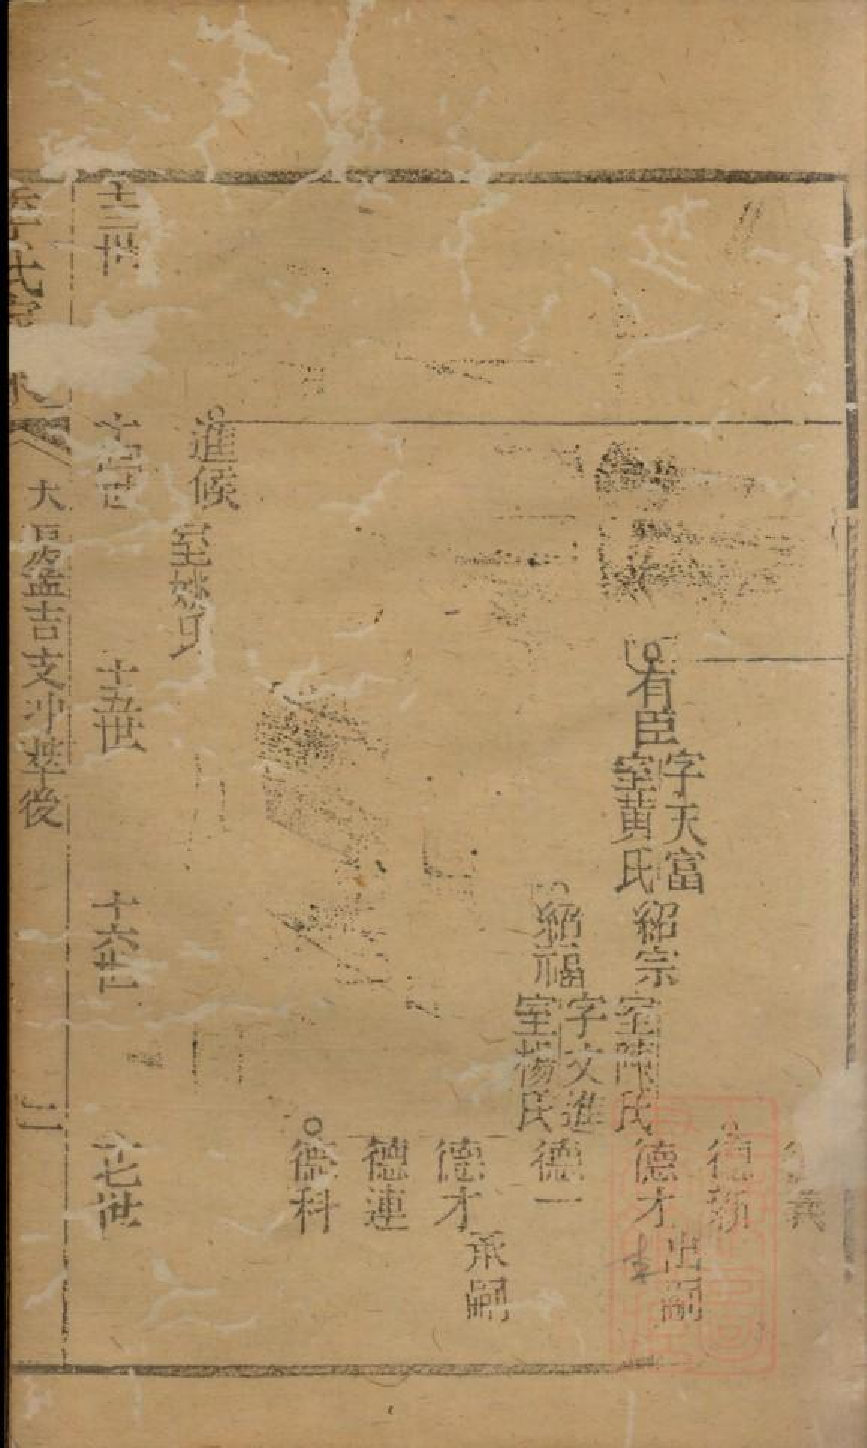 德義
德新
有臣 字天富 室黃氏
紹宗 室陳氏
德才 出嗣
紹福 字文進 室楊氏
德一
德才 承嗣
德連
德科
進候 室姚氏
十三世
十四世
十五世
十六世
十七世
李氏宗
孟吉支冲華後
二